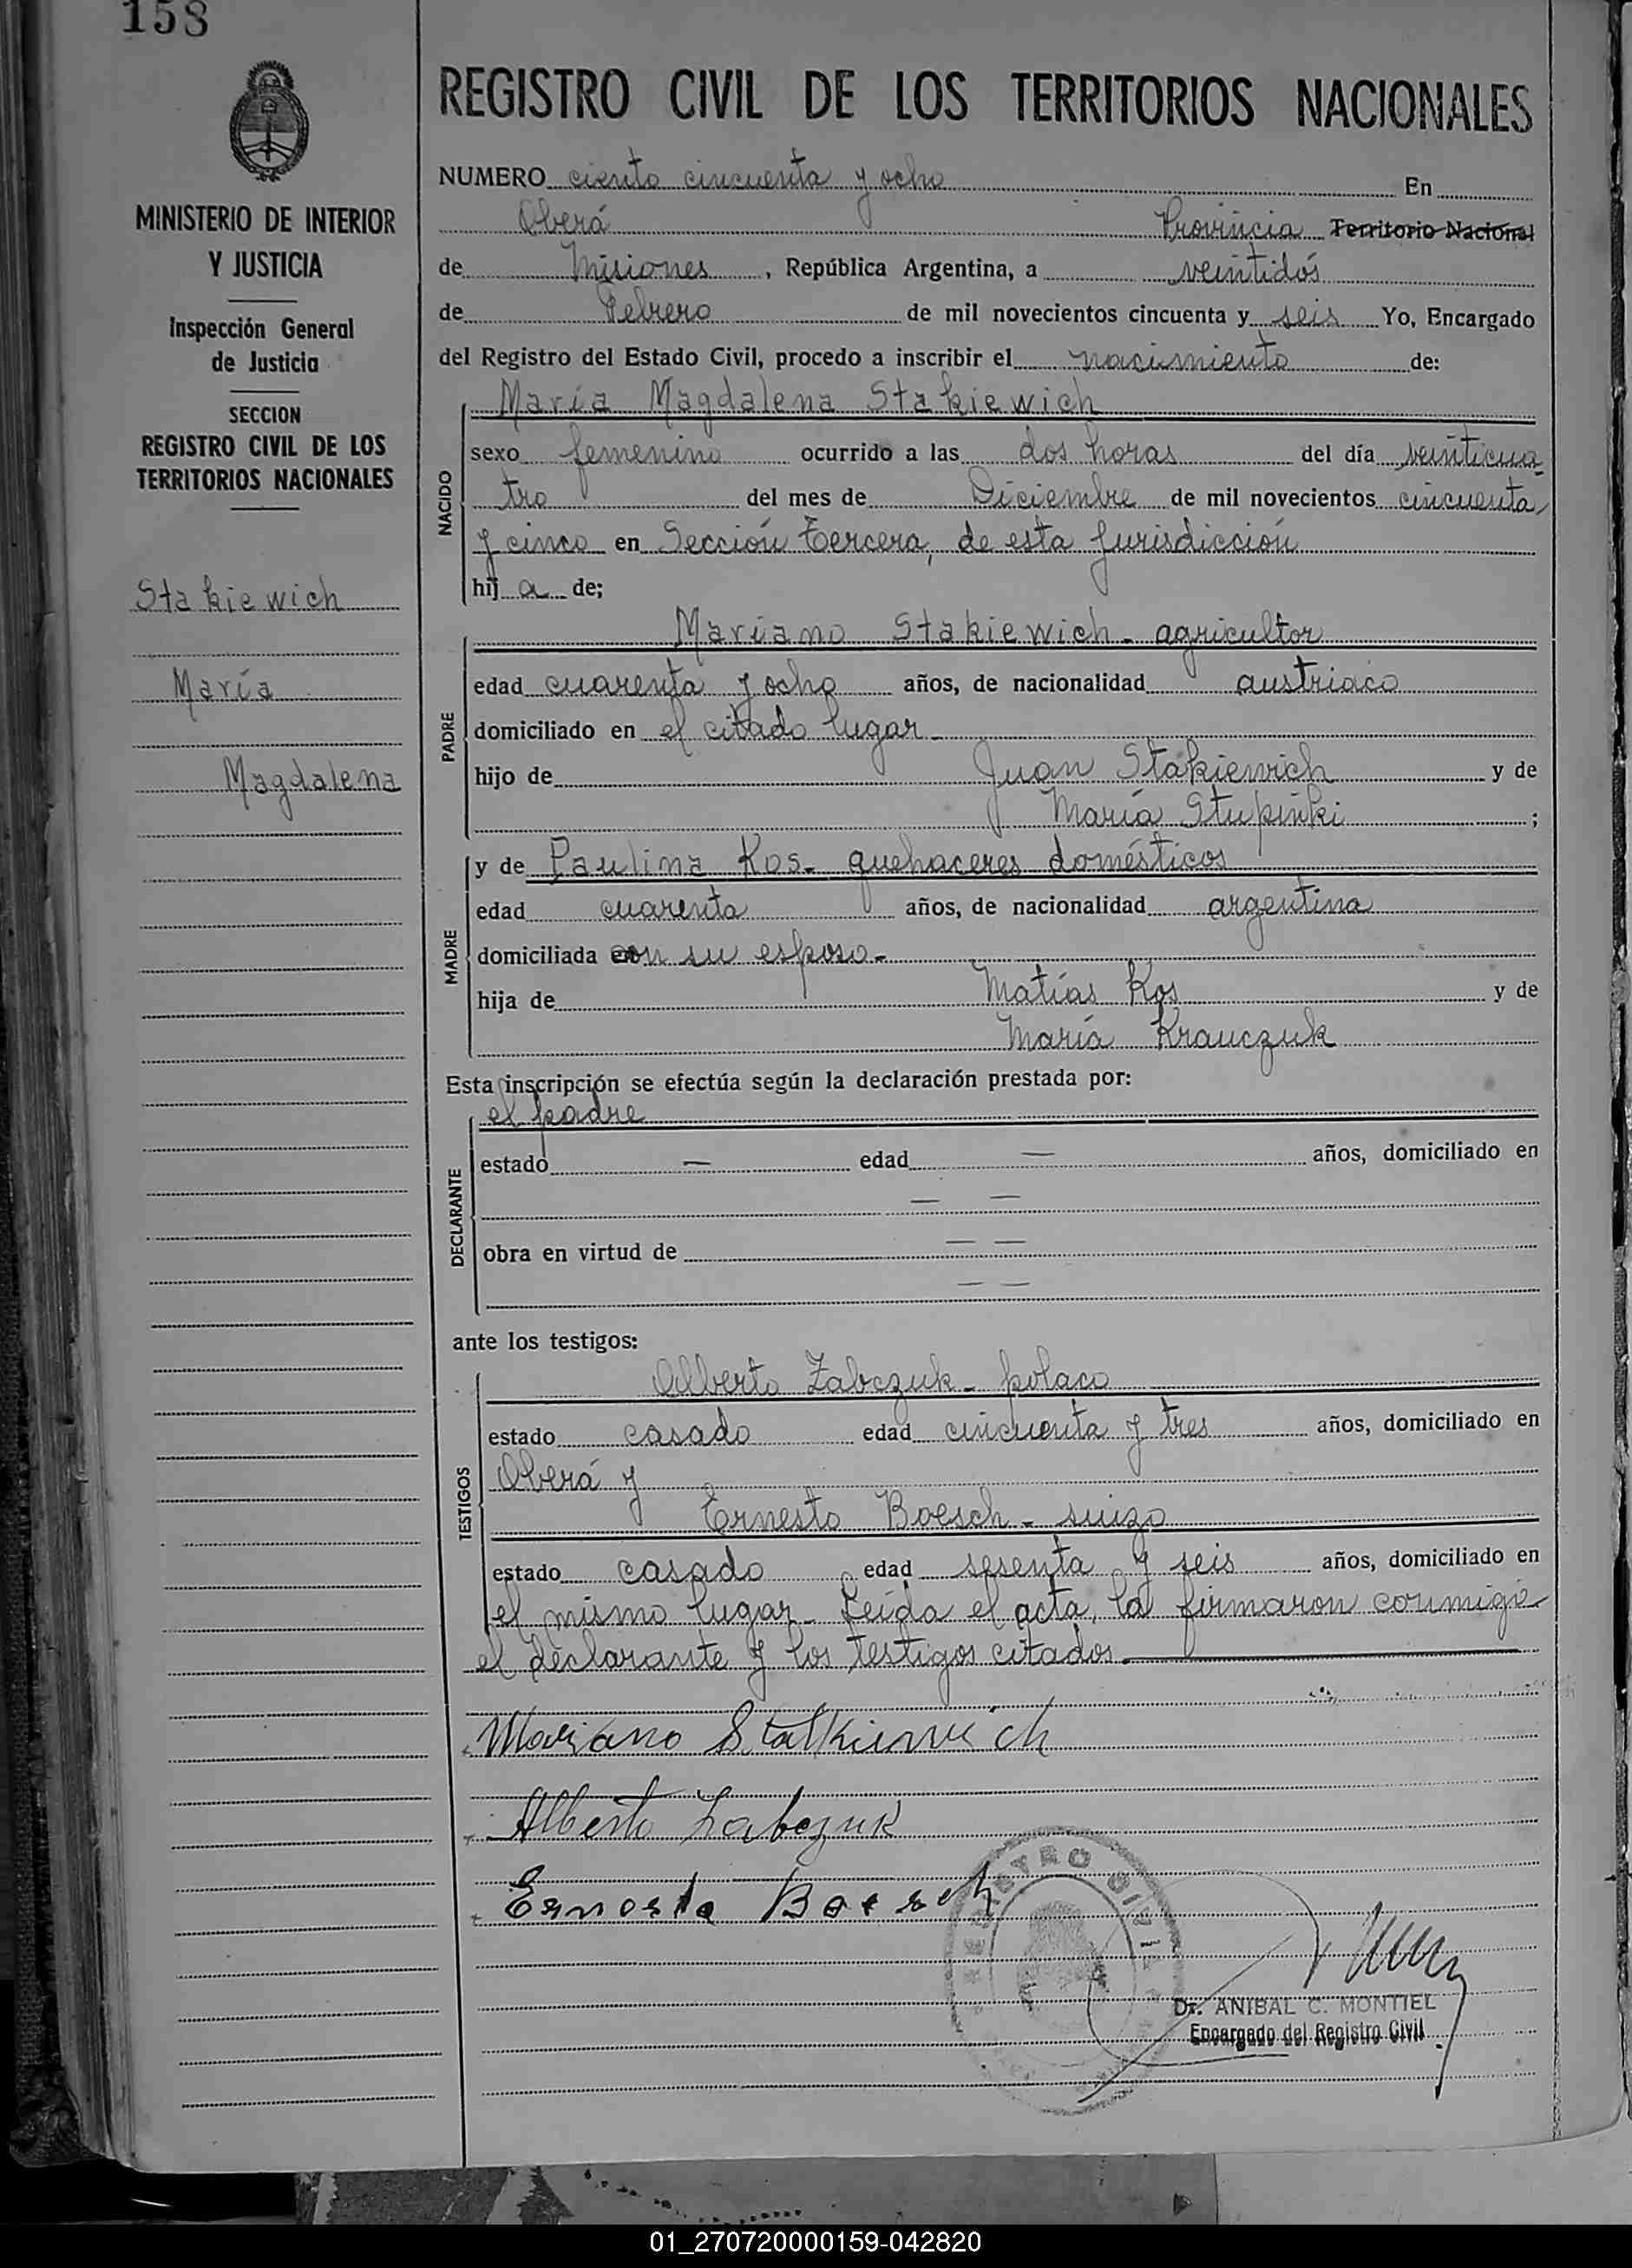 158
MINISTERIO DE INTERIOR
Y JUSTICIA
Inspección General
de Justicia
SECCION
REGISTRO CIVIL DE LOS
TERRITORIOS NACIONALES
Stakiewich
María
Magdalena
REGISTRO CIVIL DE LOS TERRITORIOS NACIONALES
NUMERO ciento cincuenta y ocho En
Oberá Provincia Territorio Nacional
de Misiones, República Argentina, a veintidós
de Febrero de mil novecientos cincuenta y seis Yo, Encargado
del Registro del Estado Civil, procedo a inscribir el nacimiento de:
NACIDO
María Magdalena Stakiewich
sexo femenino ocurrido a las dos horas del día veinticua-
tro del mes de Diciembre de mil novecientos cincuenta
y cinco en Sección tercera, de esta jurisdicción
hij a de;
PADRE
Mariano Stakiewich - agricultor
edad cuarenta y ocho años, de nacionalidad austriaco
domiciliado en el citado lugar -
hijo de Juan Stakiewich y de
María Stupiñki ;
MADRE
y de Paulina Kos - quehaceres domésticos
edad cuarenta años, de nacionalidad argentina
domiciliada con su esposo -
hija de Matías Kos y de
María Krauczuk
Esta inscripción se efectúa según la declaración prestada por:
DECLARANTE
el padre
estado — edad — años, domiciliado en
— —
obra en virtud de — —
— —
ante los testigos:
TESTIGOS
Alberto Zabczuk - polaco
estado casado edad cincuenta y tres años, domiciliado en
Oberá y
Ernesto Boesch - suizo
estado casado edad sesenta y seis años, domiciliado en
el mismo lugar - Leída el acta, la firmaron conmigo
el declarante y los testigos citados.
Mariano Stalkiewich
Alberto Zabczuk
Ernesto Boesch
REGISTRO CIVIL
Dr. ANIBAL C. MONTIEL
Encargado del Registro Civil
01_270720000159-042820